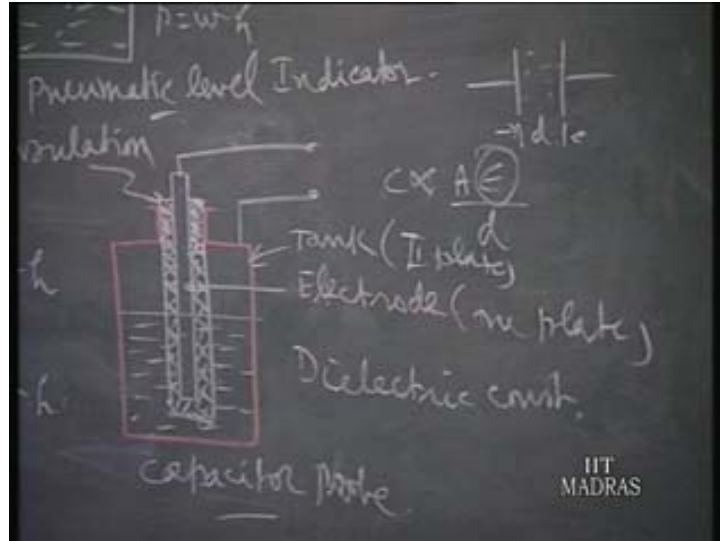 P = w h
Pneumatic level Indicator.
d
insulation
C ∝ Aε
d
Tank (II plate)
Electrode (one plate)
h
Dielectric const.
h
Capacitor probe
IIT
MADRAS